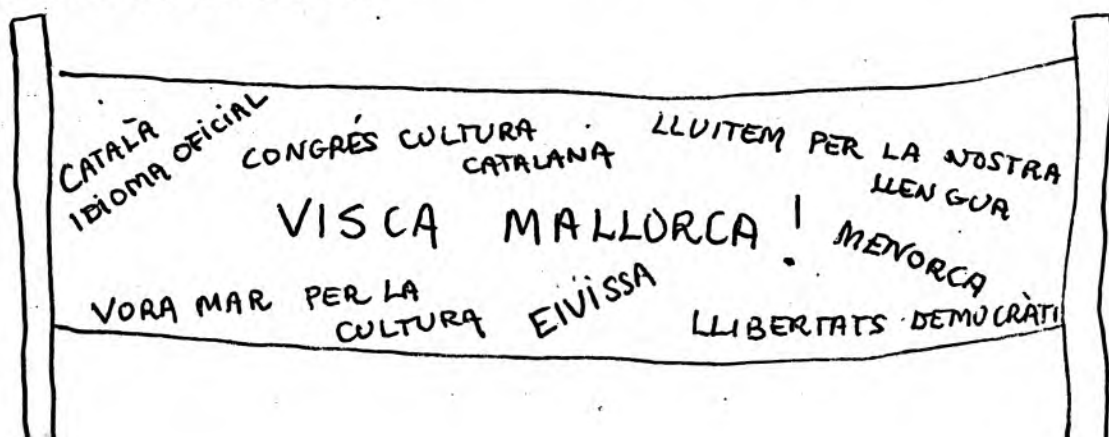 CATALÀ
IDIOMA OFICIAL
CONGRÉS CULTURA
CATALANA
LLUITEM PER LA NOSTRA
LLENGUA
VISCA MALLORCA!
MENORCA
VORA MAR PER LA
CULTURA
EIVISSA
LLIBERTATS DEMOCRÀTI